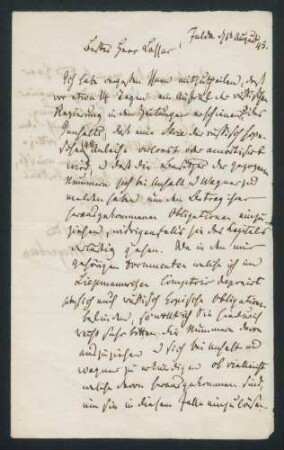 Fulda d 18 August
45.
Bester Herr Lasser!
Ich habe vergessen Ihnen mitzutheilen, daß
vor etwa 14 Tagen ein Aufruf der russischen
Regierung in den Zeitungen
Inhalts, daß eine Serie der russisch
Anleihe verloost oder amortisirt
wird, u daß die Besitzer der gezogenen
Nummern sich bei Anhalt u Wagner zu
melden haben um den Betrag ihrer
herausgekommenen Obligationen einzu
ziehen, widrigenfalls sie des Kapitals
verlustig gehen. Da in den mir
gehörigen Documenten welche ich im
Comptoir deponirt
sich auch russisch Obligationen
befinden, so wollte ich Sie hiedurch
recht sehr bitten die Nummern davon
auszuziehen u sich bei Anhalt und
Wagner zu erkundigen ob vielleicht
welche davon herausgekommen sind,
um sie in diesem Falle einzulösen.